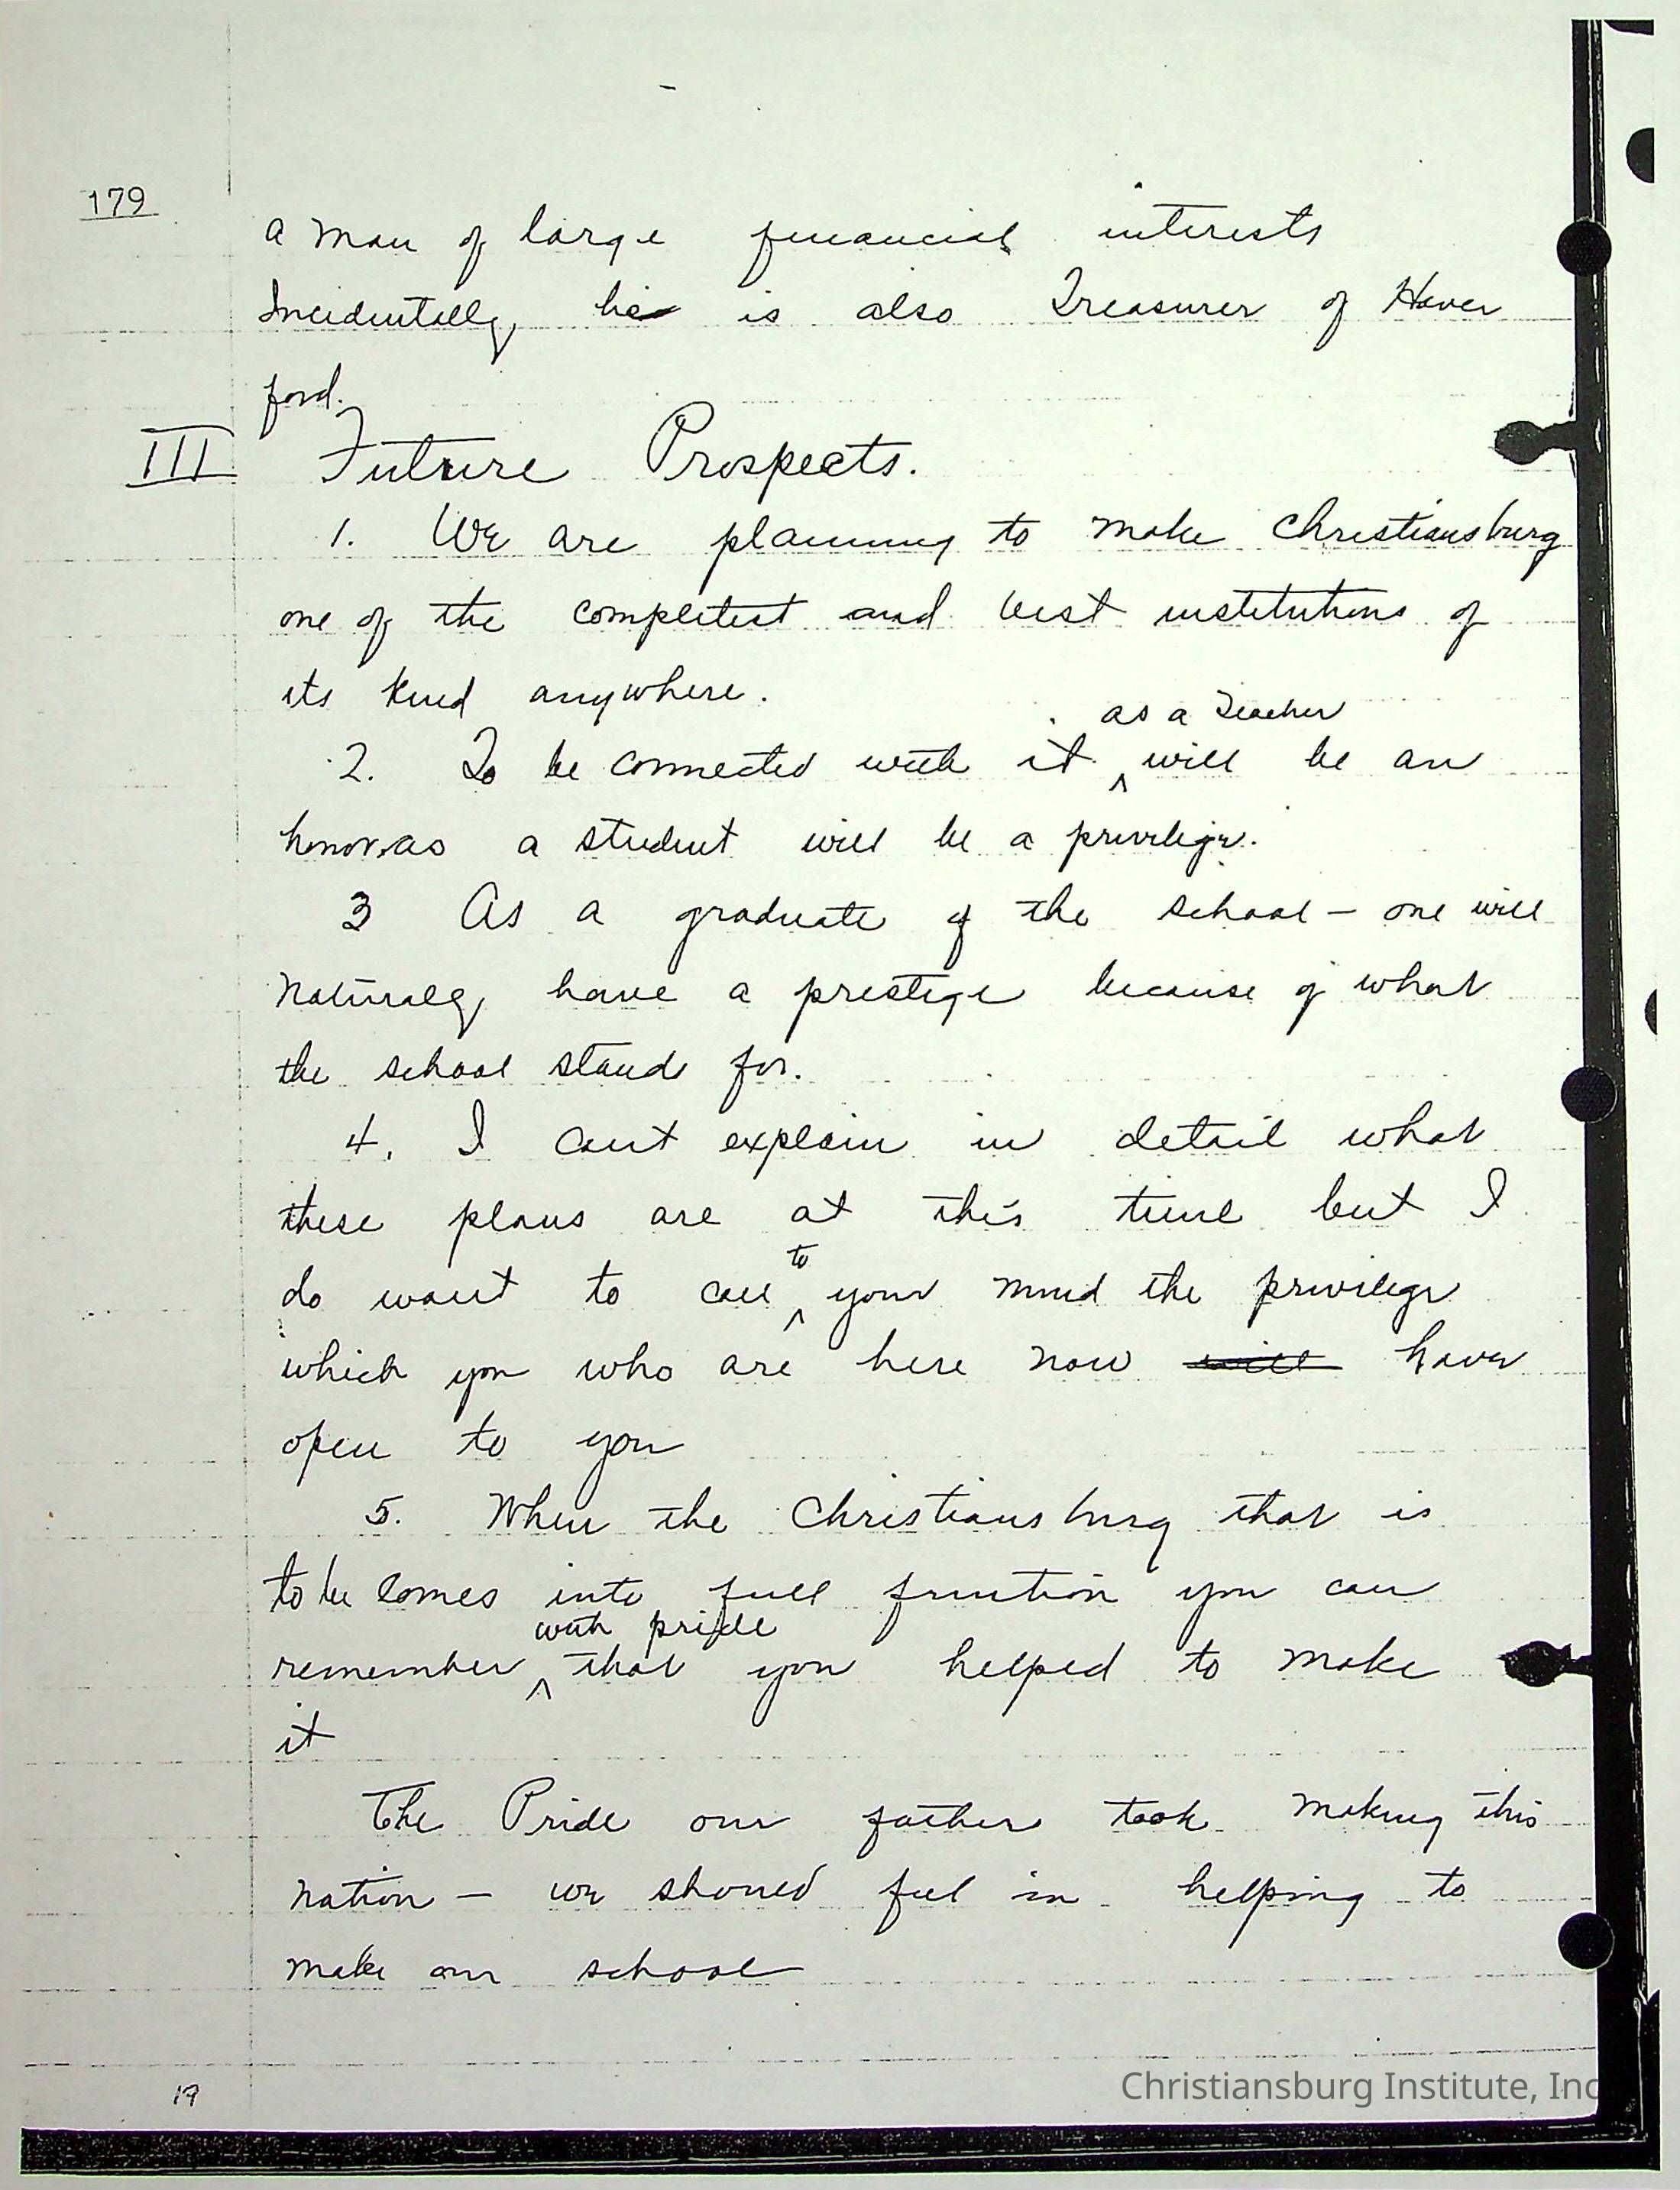 179
a man of large financial interests
Incidentally, he is also Treasurer of Haver
ford.
III Future Prospects.
1. We are planning to make Christiansburg
one of the completest and best institutions of
its kind anywhere.
as a Teacher
2. To be connected with it ^ will be an
honor, as a student will be a privilege.
3 As a graduate of the school — one will
naturally have a prestige because of what
the school stand for.
4. I cant explain in detail what
these plans are at this time but I
to
do want to call ^ your mind the privilege
which you who are here now will have
open to you
5. When the Christiansburg that is
to be comes into full fruition you can
with pride
remember ^ that you helped to make
it
The Pride our father took making this
nation — we should feel in helping to
make our school
19
Christiansburg Institute, Inc